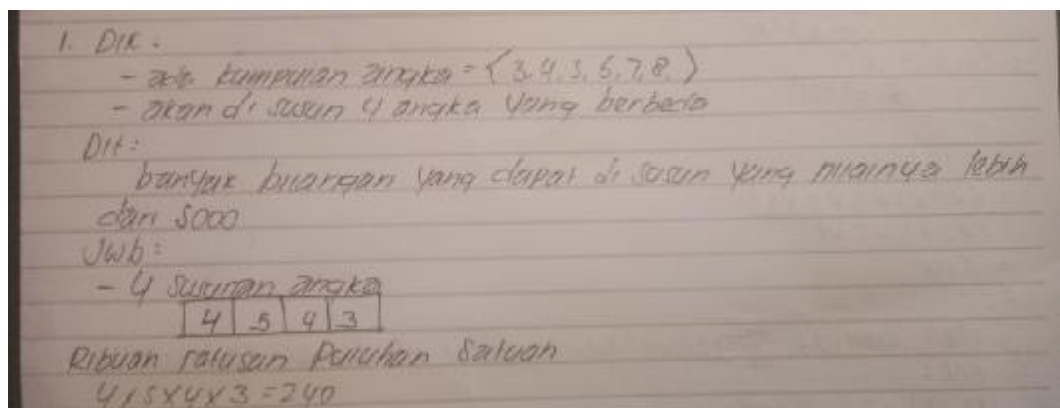 1. Dik :
- ada kumpulan angka = { 3, 4, 5, 6, 7, 8 }
- akan di susun 4 angka yang berbeda
Dit :
banyak bilangan yang dapat di susun yang nilainya lebih
dari 5000
Jwb :
- 4 susunan angka
4 5 4 3
Ribuan ratusan Puluhan Satuan
4 x 5 x 4 x 3 = 240